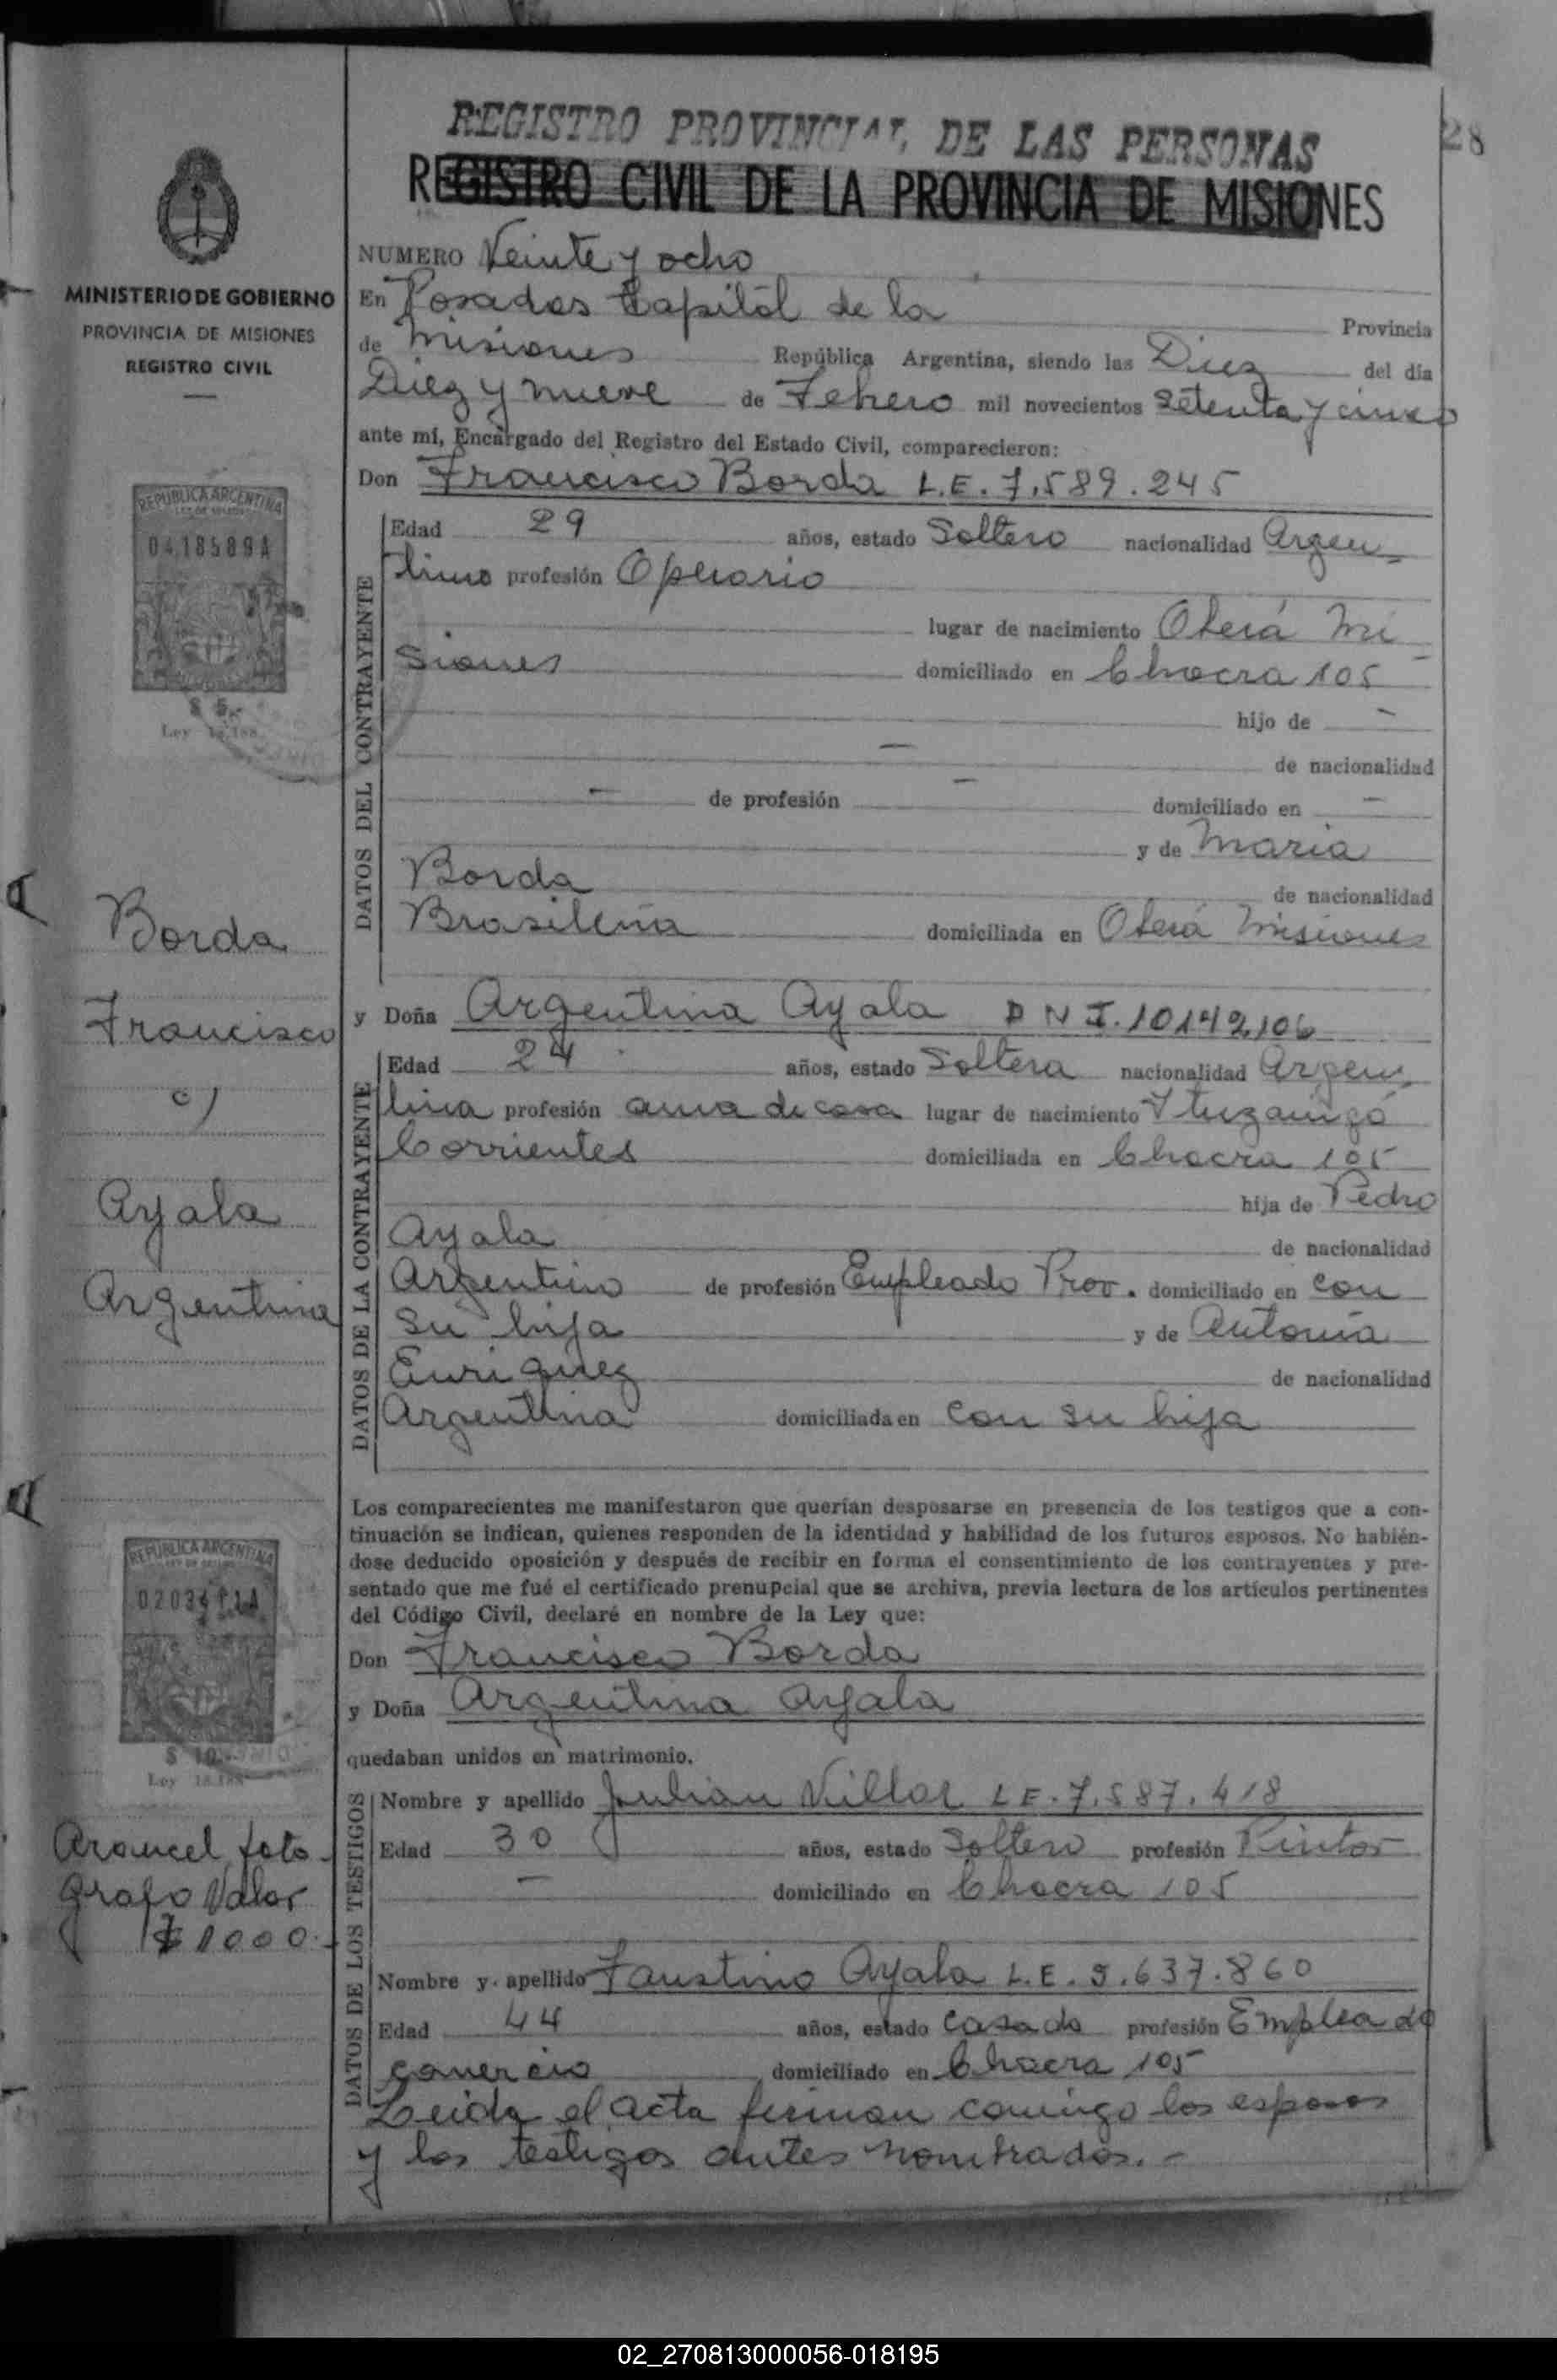 28
REGISTRO PROVINCIAL DE LAS PERSONAS
REGISTRO CIVIL DE LA PROVINCIA DE MISIONES
MINISTERIO DE GOBIERNO
PROVINCIA DE MISIONES
REGISTRO CIVIL
REPUBLICA ARGENTINA
0418589A
$ 5.-
Ley 18.188
Borda
Francisco
c/
Ayala
Argentina
REPUBLICA ARGENTINA
$ 10.-
Ley 18.188
Arancel foto
grafo Valor
$ 1000.-
NUMERO Veinte y ocho
En Posadas Capitál de la Provincia
de Misiones República Argentina, siendo las Diez del día
Diez y nueve de Febrero mil novecientos setenta y cinco
ante mí, Encargado del Registro del Estado Civil, comparecieron:
Don Francisco Borda L.E. 7.589.245
DATOS DEL CONTRAYENTE
Edad 29 años, estado Soltero nacionalidad Argen-
tino profesión Operario
lugar de nacimiento Oberá Mi
siones domiciliado en Chacra 105
hijo de -
- de nacionalidad
- de profesión - domiciliado en -
y de Maria
Borda de nacionalidad
Brasileña domiciliada en Oberá Misiones
y Doña Argentina Ayala D N I. 10142106
DATOS DE LA CONTRAYENTE
Edad 24 años, estado Soltera nacionalidad Argen-
tina profesión ama de casa lugar de nacimiento Ituzaingó
Corrientes domiciliada en Chacra 105
hija de Pedro
Ayala de nacionalidad
Argentino de profesión Empleado Prov. domiciliado en con
su hija y de Antonia
Enriquez de nacionalidad
Argentina domiciliada en con su hija
Los comparecientes me manifestaron que querían desposarse en presencia de los testigos que a con-
tinuación se indican, quienes responden de la identidad y habilidad de los futuros esposos. No habién-
dose deducido oposición y después de recibir en forma el consentimiento de los contrayentes y pre-
sentado que me fué el certificado prenupcial que se archiva, previa lectura de los artículos pertinentes
del Código Civil, declaré en nombre de la Ley que:
Don Francisco Borda
y Doña Argentina Ayala
quedaban unidos en matrimonio.
DATOS DE LOS TESTIGOS
Nombre y apellido Julian Villar L E. 7.587.418
Edad 30 años, estado Soltero profesión Pintor
- domiciliado en Chacra 105
Nombre y apellido Faustino Ayala L.E. 5.637.860
Edad 44 años, estado Casado profesión Empleado
comercio domiciliado en Chacra 105
Leida el acta firman comigo los esposos
y los testigos antes nombrados.-
02_270813000056-018195